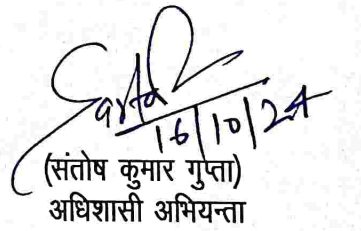 16/10/24
(संतोष कुमार गुप्ता)
अधिशासी अभियन्ता